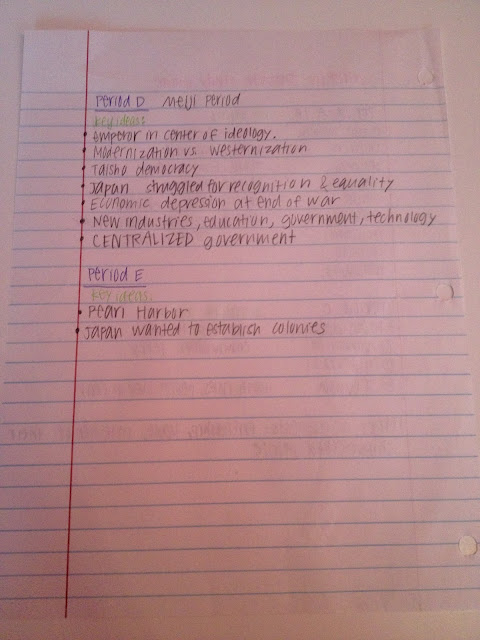 Period D Meiji Period
key ideas:
• emperor in center of ideology.
• Modernization vs. westernization
• Taisho democracy
• Japan struggled for recognition & equality
• Economic depression at end of war
• New industries, education, government, technology
• CENTRALIZED government
Period E
key ideas:
• Pearl Harbor
• Japan wanted to establish colonies